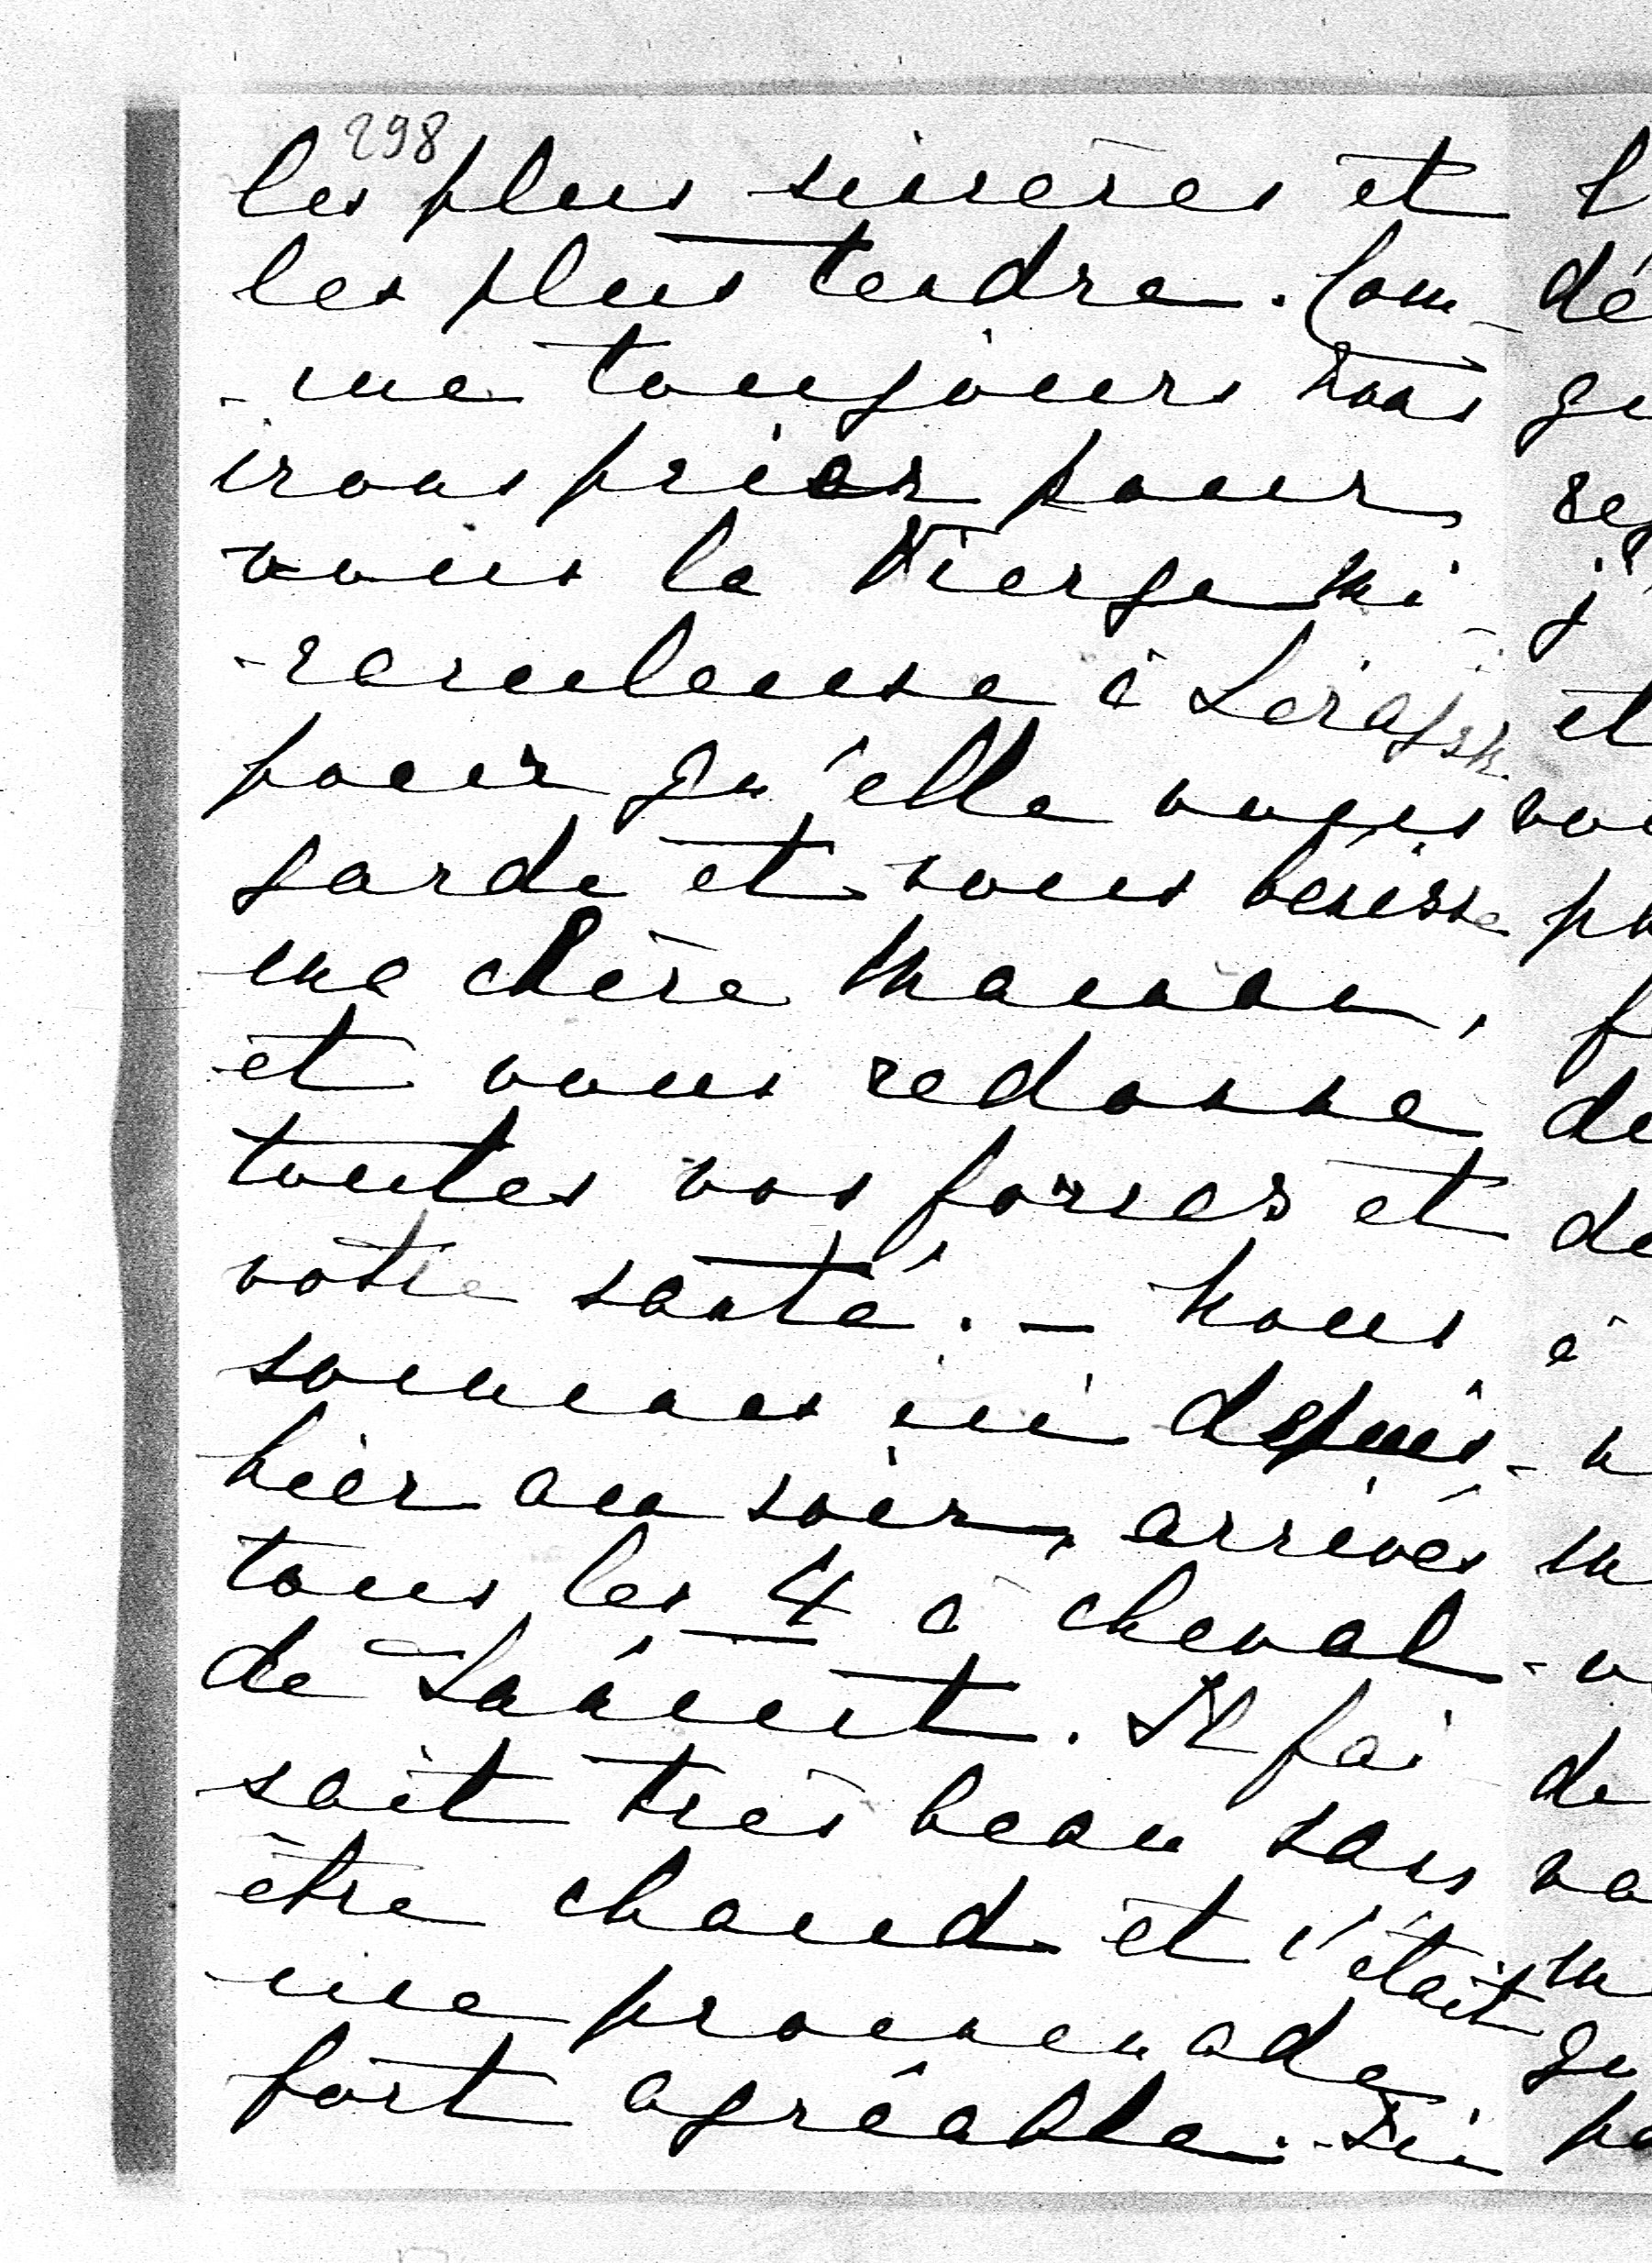 298
les plus sincères et
les plus tendre. Com-
-me toujours nous
irons prier pour
vous la Vierge Mi-
-raculeuse à
pour qu'elle vous
garde et vous bénisse
ma chère Maman,
et vous redonne
toutes vos forces et
votre santé. — Nous
sommes ici depuis
hier au soir, arrivés
tous les 4 à cheval
de Łańcut. Il fai-
sait très beau sans
être chaud et c'était
une promenade
fort agréable. Ici